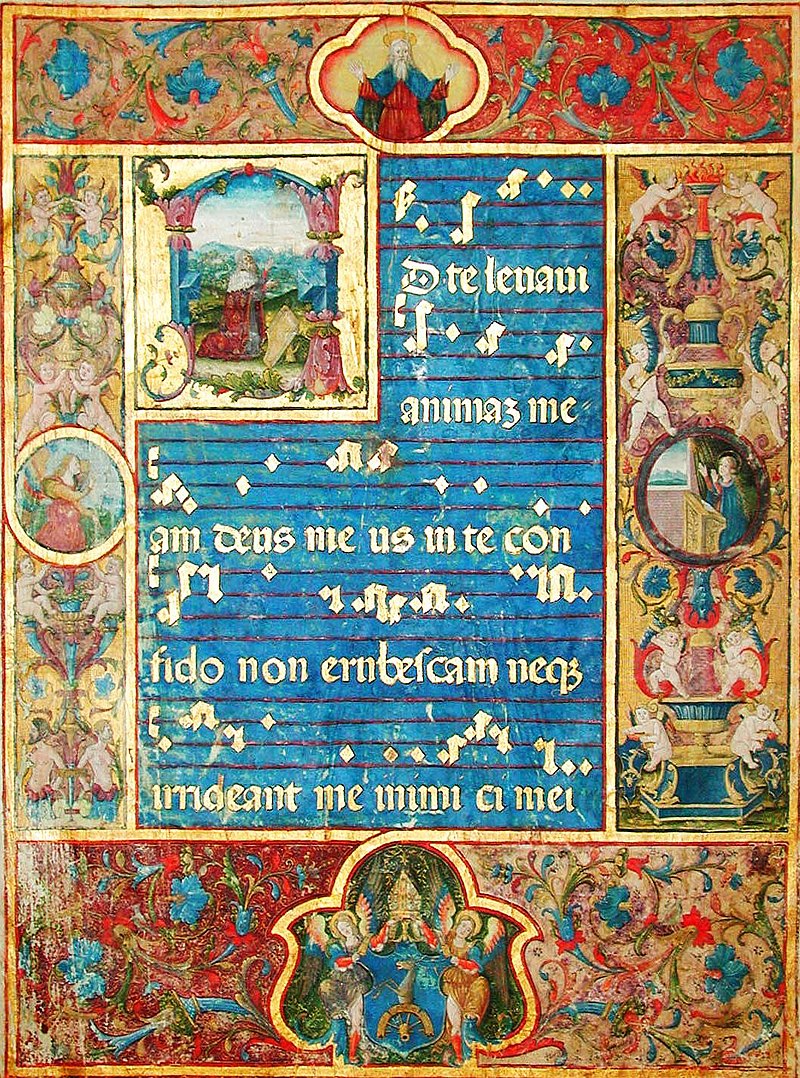 D te leuaui
animaʒ me⸗
am deus me us in te con
fido non erubescam neqʒ
irrideant me inimi ci mei